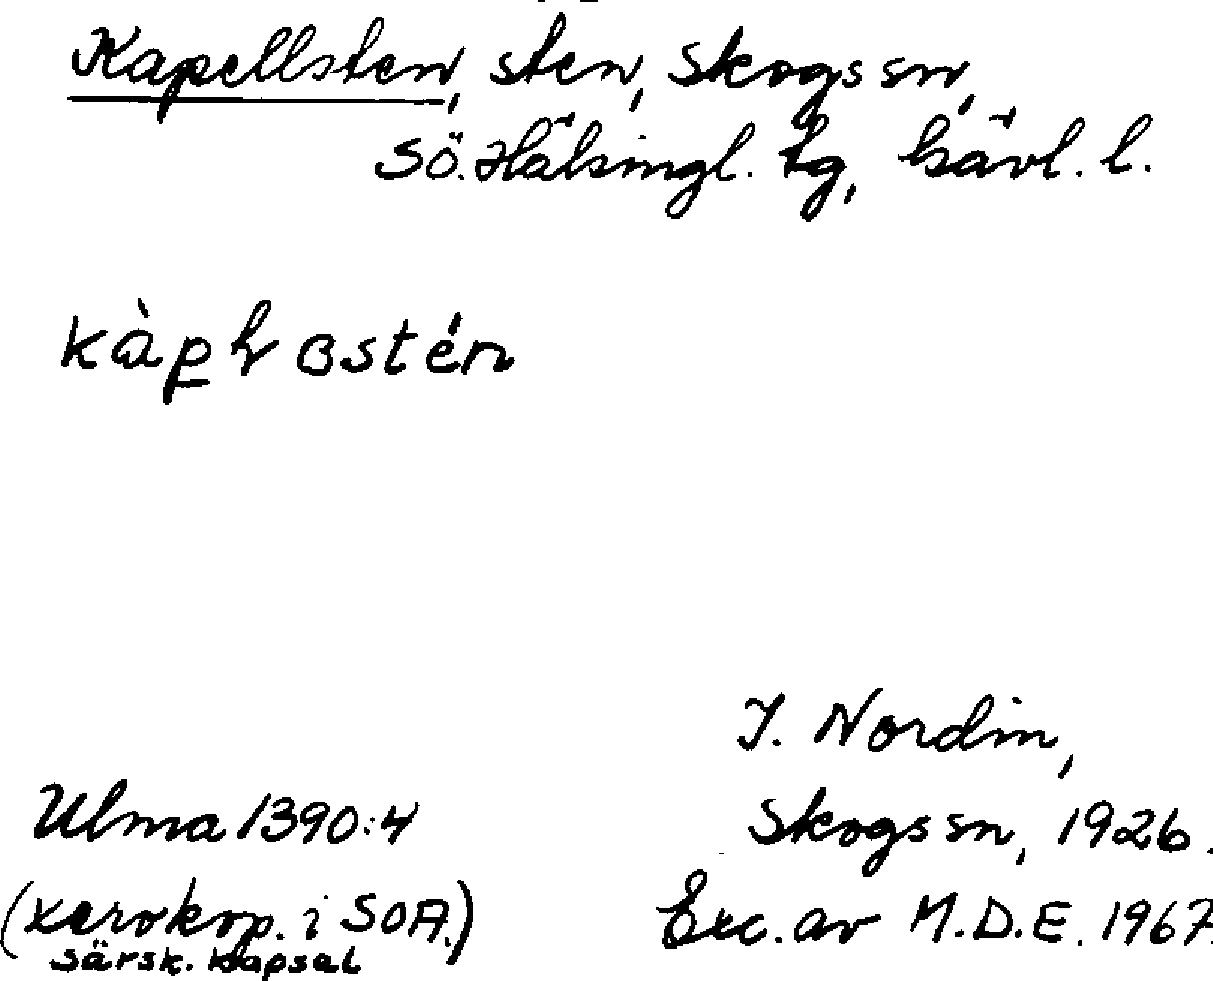 Kapellsten, sten, Skogs sn,
Sö. Hälsingl. tg, Gävl. l.
Ulma 1390:4
(Xerokop. i SOA.)
särsk. kapsel
I. Nordin,
Skogs sn, 1926.
Exc. av M.D.E. 1967.